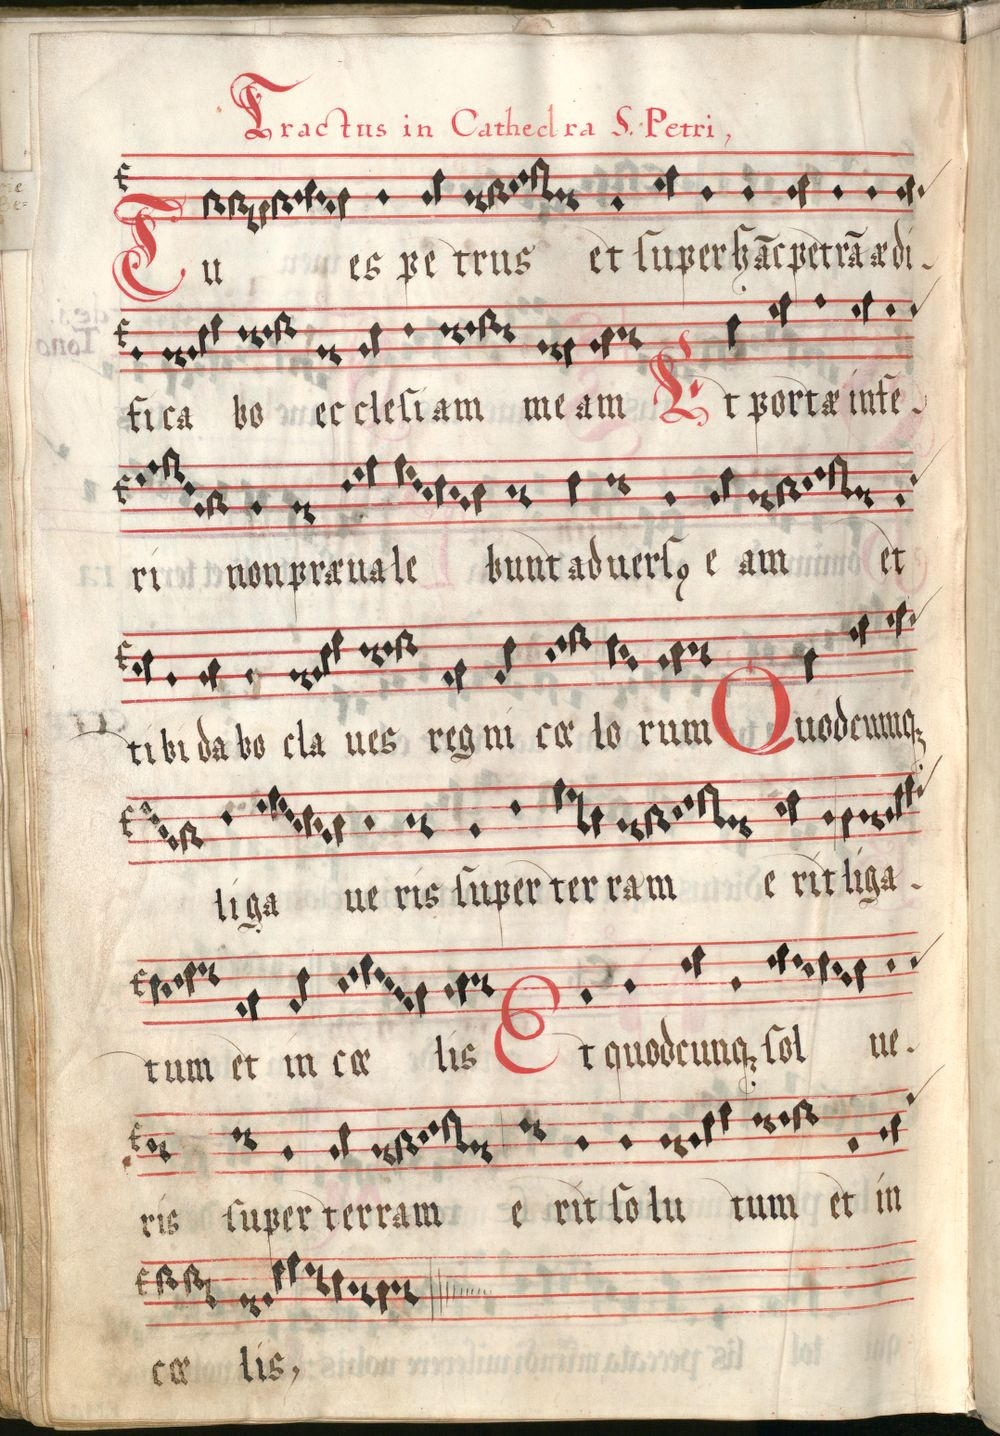 Tractus in Cathedra S. Petri,
Tu es pe trus et ſuper hãc petrã ædi.
fica bo ec cleſiam me am Et portæ infe.
ri non præuale bunt aduerſꝯ e am et
tibi da bo cla ues reg ni cœ lo rum Quodcumqꝫ
liga ue ris ſuper ter ram e rit liga.
tum et in cœ lis Et quodcunqꝫ ſol ue.
ris ſuper terram e rit ſo lu tum et in
cœ lis,